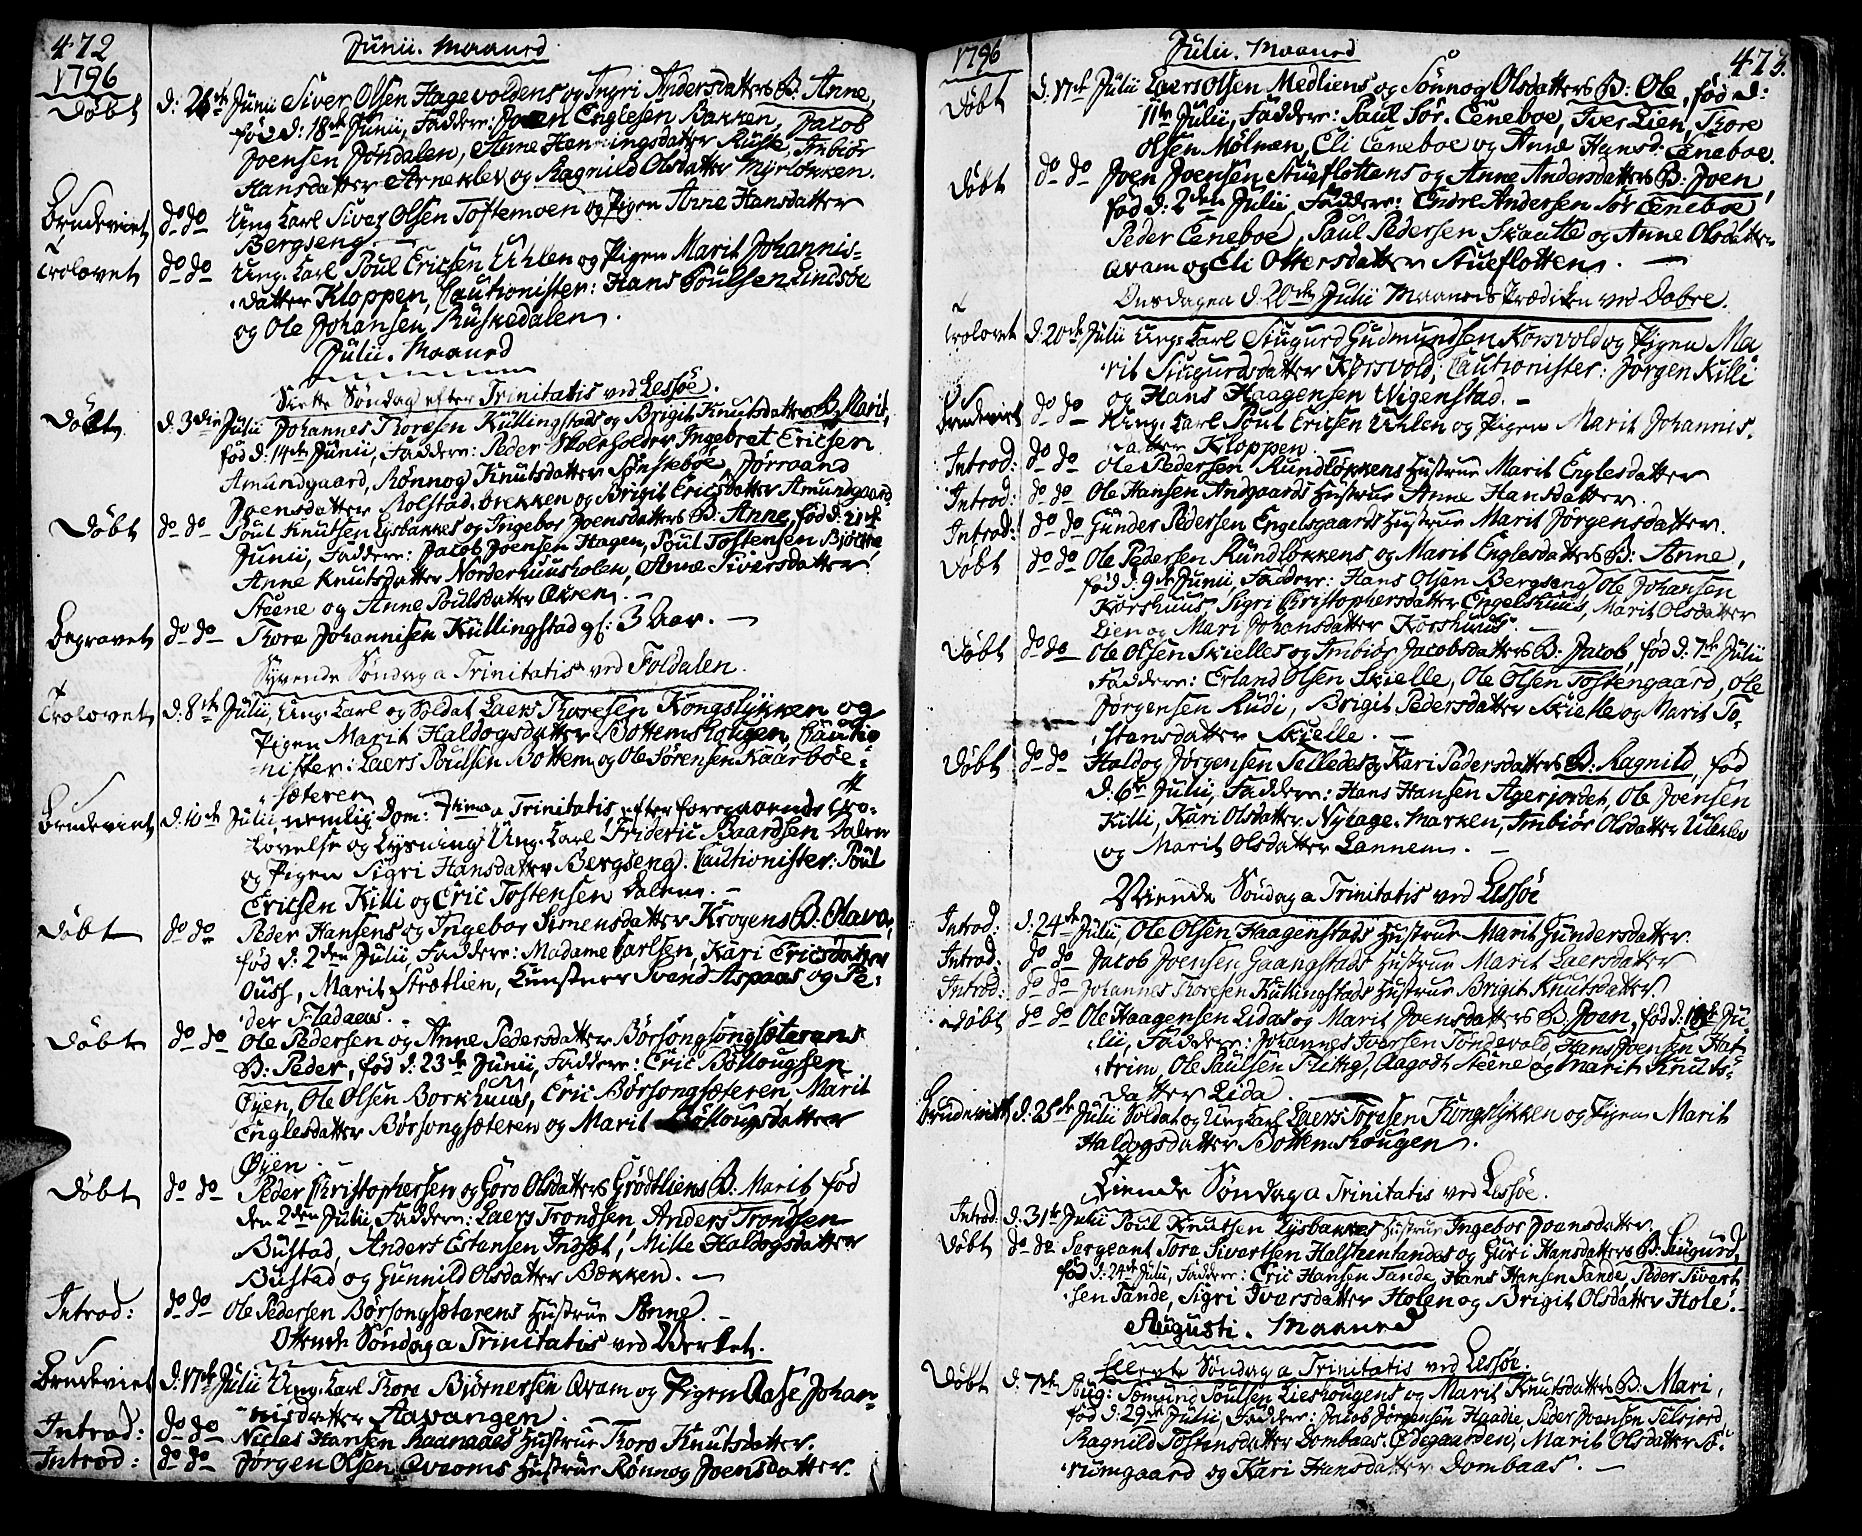 472
Junii. Maaned
1796
Døbt d: 26de Junii Siver Olsen Hagevoldens og Ingri Andersdatters B: Anne,
fød d: 18de Junii, Faddere: Joen Englesen Bakken, Jacob
Joensen Jøndalen, Anne Henningsdatter Ruste, Imbiør
Hansdatter Arneklev og Ragnild Olsdatter Myrløkken.
Brudeviet do do Ung Carl Siver Olsen Toftemoen og Pigen Anne Hansdatter
Bergseng.
Trolovet do do Ung Carl Poul Ericsen Uhlen og Pigen Marit Johannis-
datter Kloppen, Cautionister: Hans Poulsen Lindsøe
og Ole Johansen, Ruskedalen.
Julii. Maaned
Siette Søndag efter Trinitatis ved Lessøe.
Døbt d. 3die Julii Johannes Thoresen Küllingstads og Brigit Knutsdatters B. Marit,
fød d: 14de Junii, Faddere: Peder Skoleholder, Ingebret Ericsen
Amundgaard, Rønnog Knutsdatter Sønstebøe, Jørraand
Joensdatter Rolstad-brekken og Brigit Ericsdatter Amundgaard
Døbt do do Poul Knutsen Lysbakkes og Ingebor Joensdatters B: Anne, fød d: 21de
Junii, Faddere: Jacob Joensen Hagen, Poul Tostensen Biørkne
Anne Knutsdatter Norderhuusholen, Anne Siversdatter
Steene og Anne Poulsdatter Økren.
Begravet do do Thore Johannisen Küllingstad gl: 3 Aar.
Syvende Søndag a Trinitatis ved Foldalen.
Trolovet d: 8de Julii, Ung Carl og Soldat Laers Thoresen Kongslykken og
Pigen Marit Haldogsdatter Bottemshougen, Cautio-
nister: Laers Poulsen Bottem og Ole Sørensen Kaarbøe-
sæteren
Brudeviet d: 10de Julii, nemlig Dom: 7tima a Trinitatis, efter foregaaende Tro-
lovelse og Lysning Ung Carl Frideric Baardsen Dalen
og Pigen Sigri Hansdatter Bergseng. Cautionister: Poul
Ericsen Killi og Eric Tostensen Dalen.
Døbt do do Peder Hansens og Ingebor Simensdatter Krogens B: Olava,
fød d. 2den Julii, Faddere: Madame Carlsen, Kari Ericsdatter
Ouss, Marit Strætlien, Svend Aspaas og Pe-
der Fladaas.
Døbt do do Ole Pedersen og Anne Pedersdatter Børsongsæterens
B: Peder, fød d: 23de Junii, Faddere: Eric Bøllougsen
Øyen, Ole Olsen Borkhuus, Eric Børsongsæteren, Marit
Englesdatter Børsongsæteren og Marit Bøllougsdatter
Øyen.
Døbt do do Peder Christophersen og Goro Olsdatters Grødtliens B: Marit, fød
den 2den Julii, Faddere: Laers Trondsen, Anders Trondsen
Bustad, Anders Estensen Indset, Mille Haldogsdatter
Bustad og Gunnild Olsdatter Bækken.
Introd: do do Ole Pedersen Børsongsæterens Hustrue Anne.
Ottende Søndag a Trinitatis ved Verket.
Brudeviet d: 17de Julii Ung Carl Thore Biørnersen Qvam og Pigen Aase Johan-
nisdatter Aavangen.
Introd: do do Niclas Hansen Raanaaes Hustrue Thore Knutsdatter.
Introd: do do Jørgen Olsen Qværns Hustrue Rønnog Joensdatter.
1796
Julii. Maaned
473.
Døbt d. 17de Julii Laers Olsen Medliens og Sønnog Olsdatters B: Ole, fød d:
11te Julii, Faddere: Paul Sør. Eeneboe, Iver Lien, Thore
Olsen Mølmen, Eli Eeneboe og Anne Hansd. Eeneboe.
Døbt do do Joen Joensen Stueflottens og Anne Andersdatters B: Joen,
fød d: 2den Julii, Faddere: Endre Andersen Sør Eeneboe
Peder Eeneboe, Paul Pedersen Skautte og Anne Olsdatter
Qvam og Eli Ottersdatter Stueflotten.
Onsdagen d: 20de Julii Maaneds Prædiken ved Dovre.
Trolovet d. 20de Julii Ung Carl Siugurd Gudmundsen Korsvold og Pigen Ma-
rit Siugurdsdatter Korsvold; Cautionister: Jørgen Killi
og Hans Haagensen Wigenstad.
Brudeviet do do Ung Carl Poul Ericsen Uhlen og Pigen Marit Johannis-
datter Kloppen.
Introd: do do Ole Pedersen Rundløkkens Hustrue Marit Englesdatter
Introd: do do Ole Hansen Andgaards Hustrue Anne Hansdatter.
Introd: do do Gunder Pedersen Engelsgaards Hustrue Marit Jørgensdatter.
Døbt do do Ole Pedersen Rundløkkens og Marit Englesdatters B: Anne,
fød d. 9de Junii, Faddere: Hans Olsen Bergseng, Ole Johansen
Korshuus, Sigri Christophersdatter Engelshuus, Marit Olsdatter
Lien og Mari Johansdatter Korshuus.
Døbt do do Ole Olsen Skielles og Imbiør Jacobsdatters B: Jacob, fød d: 7de Julii
Faddere: Erland Olsen Skielle, Ole Olsen Tostengaard, Ole
Jørgensen Rudi, Brigit Pedersdatter Skielle og Marit To-
stensdatter Skielle.
Døbt do do Haldog Jørgensen Talledes og Kari Pedersdatters B: Ragnild, fød
d. 6te Julii, Faddere: Hans Hansen Agerjordet, Ole Joensen
Killi, Kari Olsdatter Nylage-Marken, Imbiør Olsdatter Uhlen
og Marit Olsdatter Lannem.
Niende Søndag a Trinitatis ved Lessøe
Introd: d: 24de Julii, Ole Olsen Haagenstads Hustrue Marit Gundersdatter.
Introd: do do Jacob Joensen Gaangstads Hustrue Marit Laersdatter
Introd: do do Johannes Thoresen Küllingstads Hustrue Brigit Knutsdatter
Døbt do do Ole Haagensen Lidas og Marit Joensdatters B: Joen, fød d: 18de Ju-
lii, Faddere: Johannes Iversen Tøndevold, Hans Joensen Hat-
trim, Ole Paulsen Flittig, Aagodt Steene og Marit Knuts-
datter Lida.
Brudeviet d: 28de Julii Soldat og Ung Carl Laers Toresen Kongslykken og Pigen Marit
Haldogsdatter Bottemshougen.
Tiende Søndag a Trinitatis ved Lessøe.
Introd: d: 31te Julii Poul Knutsen Lysbakkes Hustrue Ingebor Joensdatter
Døbt do do Sergeant Tore Sivertsen Halsteenlandes og Guri Hansdatters B: Siugurd,
fød d: 24de Julii, Faddere: Eric Hansen Tande, Hans Hansen Tande, Peder Sivert-
sen Tande, Sigri Iversdatter Holen og Brigit Olsdatter Hole.
Augusti. Maaned
Ellevte Søndag a Trinitatis ved Lessøe.
Døbt d: 7de Aug: Sæmund Poulsen Liehougens og Marit Knutsdatters B: Mari,
fød d: 29de Julii, Faddere: Jacob Jørgensen Haadie, Peder Joensen Selsjord
Ragnild Tostensdatter Dombaas-Ødegaarden, Marit Olsdatter Fo-
rumgaard og Kari Hansdatter Dombaas.